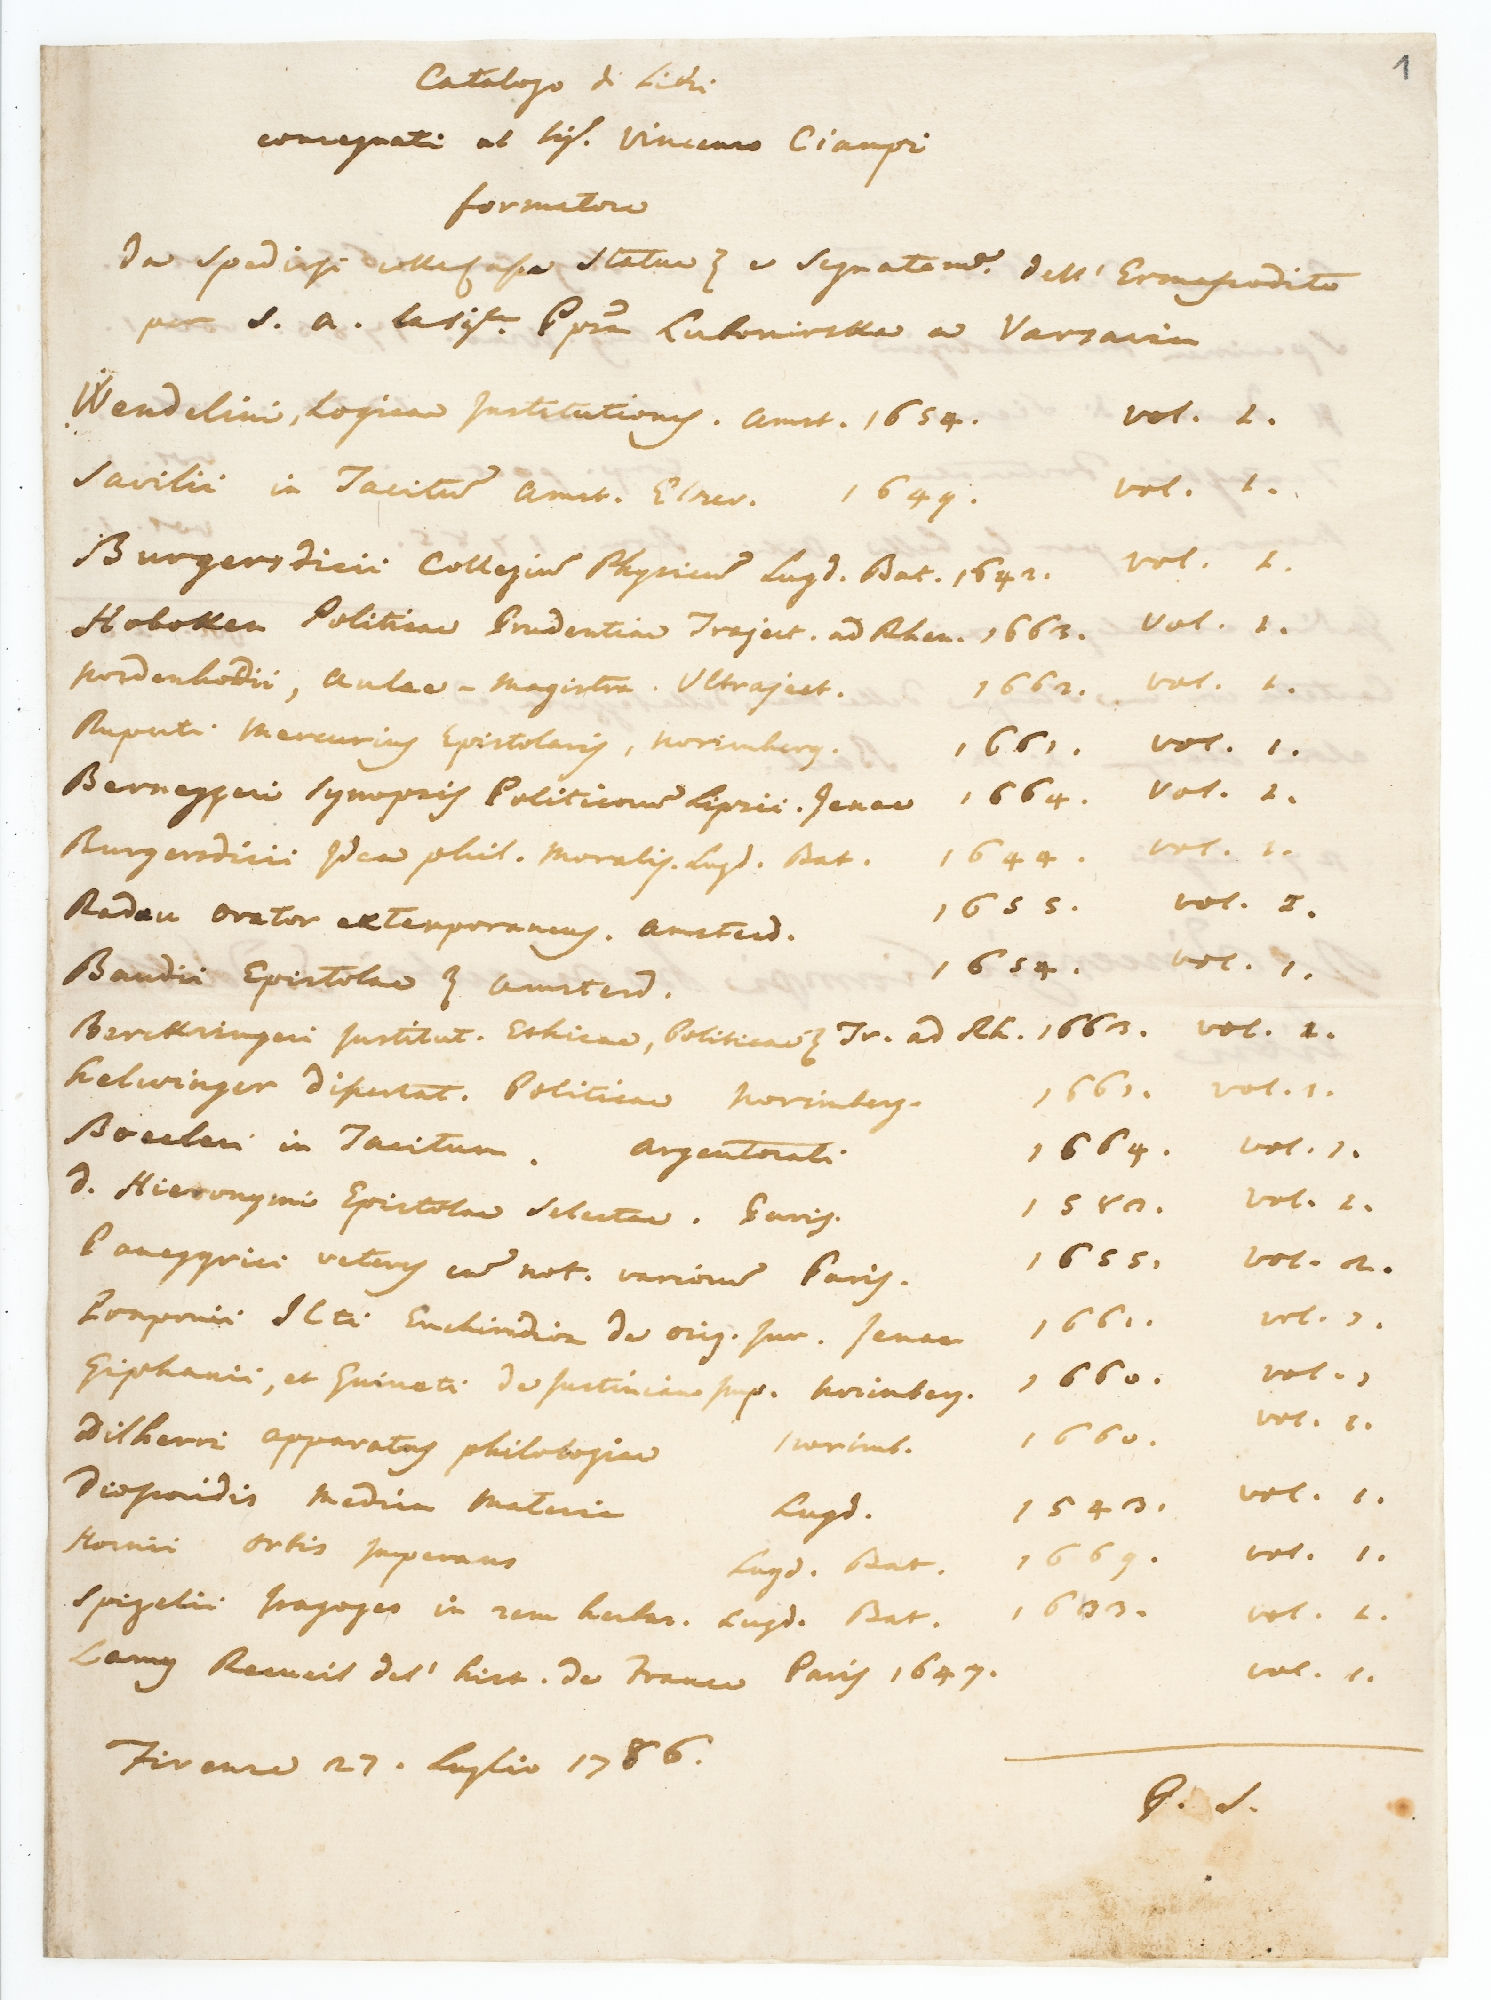 1
Catalogo di Libri
consegnati al Sig.r Vincenzo Ciampi
formatore
da spedirsi nella cassa statue & e segnatam.e dell' Ermafrodito
per S. A. la Sig.ra Pp.ssa Lubomirska a Varsavia
Wendelini, Logicae Institutiones. Amst. 1654. vol. 1.
Savilii in Tacitum Amst. Elzev. 1649. vol. 1.
Burgersdicii Collegiū Physicū Lugd. Bat. 1642. vol. 1.
Hoboken Politicae Prudentiae Traject. ad Rhen. 1663. Vol. 1.
Nordenhodii, Aulae-Magistra. Ultraject. 1662. vol. 1.
Ruperti Mercurius Epistolaris, Norimberg. 1661. vol. 1.
Berneggeri Synopsis Politicorū Lipsii. Jenae 1664. Vol. 1.
Burgersdicii Idea phil. Moralis. Lugd. Bat. 1644. vol. 1.
Radau Orator extemporaneus. Amsterd. 1655. vol. 1.
Baudii Epistolae & Amsterd. 1654. vol. 1.
Berckringeri Institut. Ethicae, Politicae & Tr. ad Rh. 1663. vol. 1.
Helwinger Dissertat. Politicae Norimberg. 1661. vol. 1.
Boecleri in Tacitum. Argentorati 1664. vol. 1.
D. Hieronymi Epistolae Selectae. Paris. 1582. vol. 1.
Panegyrici veteres cū not. variorū Paris. 1655. vol. 2.
Pomponii JCti Enchiridion de orig. Jur. Jenae 1661. vol. 1.
Giphanii, et Guineti de Justiniano Imp. Norimberg. 1660. vol. 1
Dilherri apparatus philologiae Norimb. 1660. vol. 1.
Dioscoridis Medica Materia Lugd. 1543. vol. 1.
Hornii Orbis Imperans Lugd. Bat. 1669. vol. 1.
Spigelii Isagoges in rem herbar. Lugd. Bat. 1633. vol. 1.
Lamy Recueil del' hist. de France Paris 1647. vol. 1.
Firenze 27. Luglio 1786.
G. S.